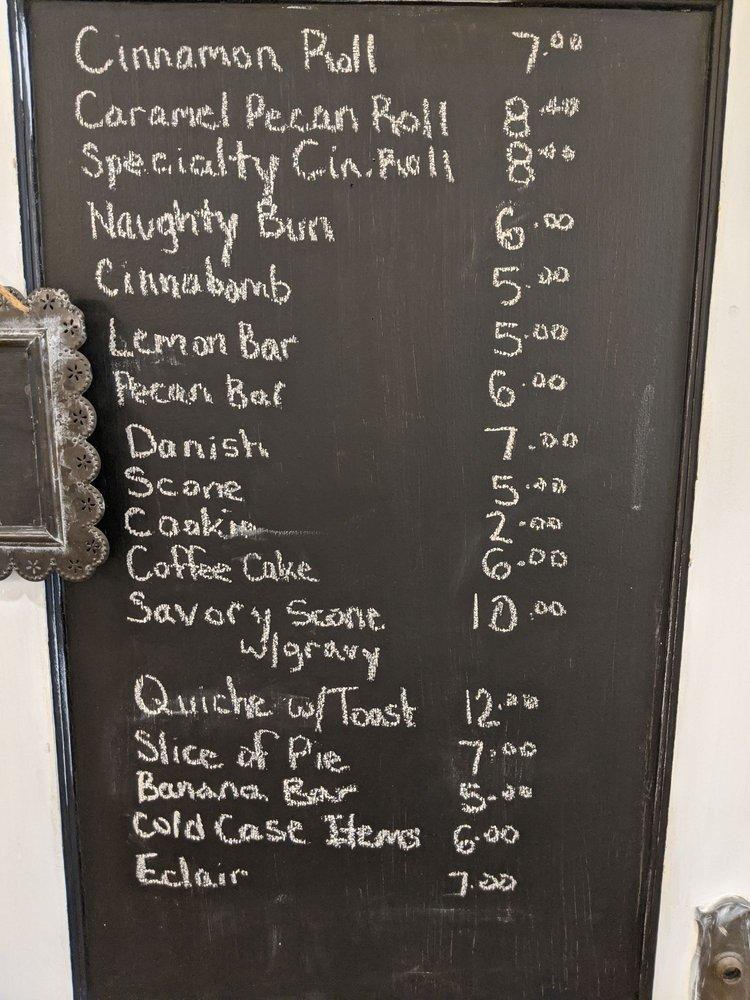 Cinnamon Roll 7.00
Caramel Pecan Roll 8.00
Specialty Cin. Roll 8.00
Naughty Bun 6.00
Cinnabomb 5.00
Lemon Bar 5.00
Pecan Bar 6.00
Danish 7.00
Scone 5.00
Cookie 2.00
Coffee Cake 6.00
Savory Scone 10.00
w/gravy
Quiche w/Toast 12.00
Slice of Pie 7.00
Banana Bar 5.00
Cold Case Items 6.00
Eclair 7.00